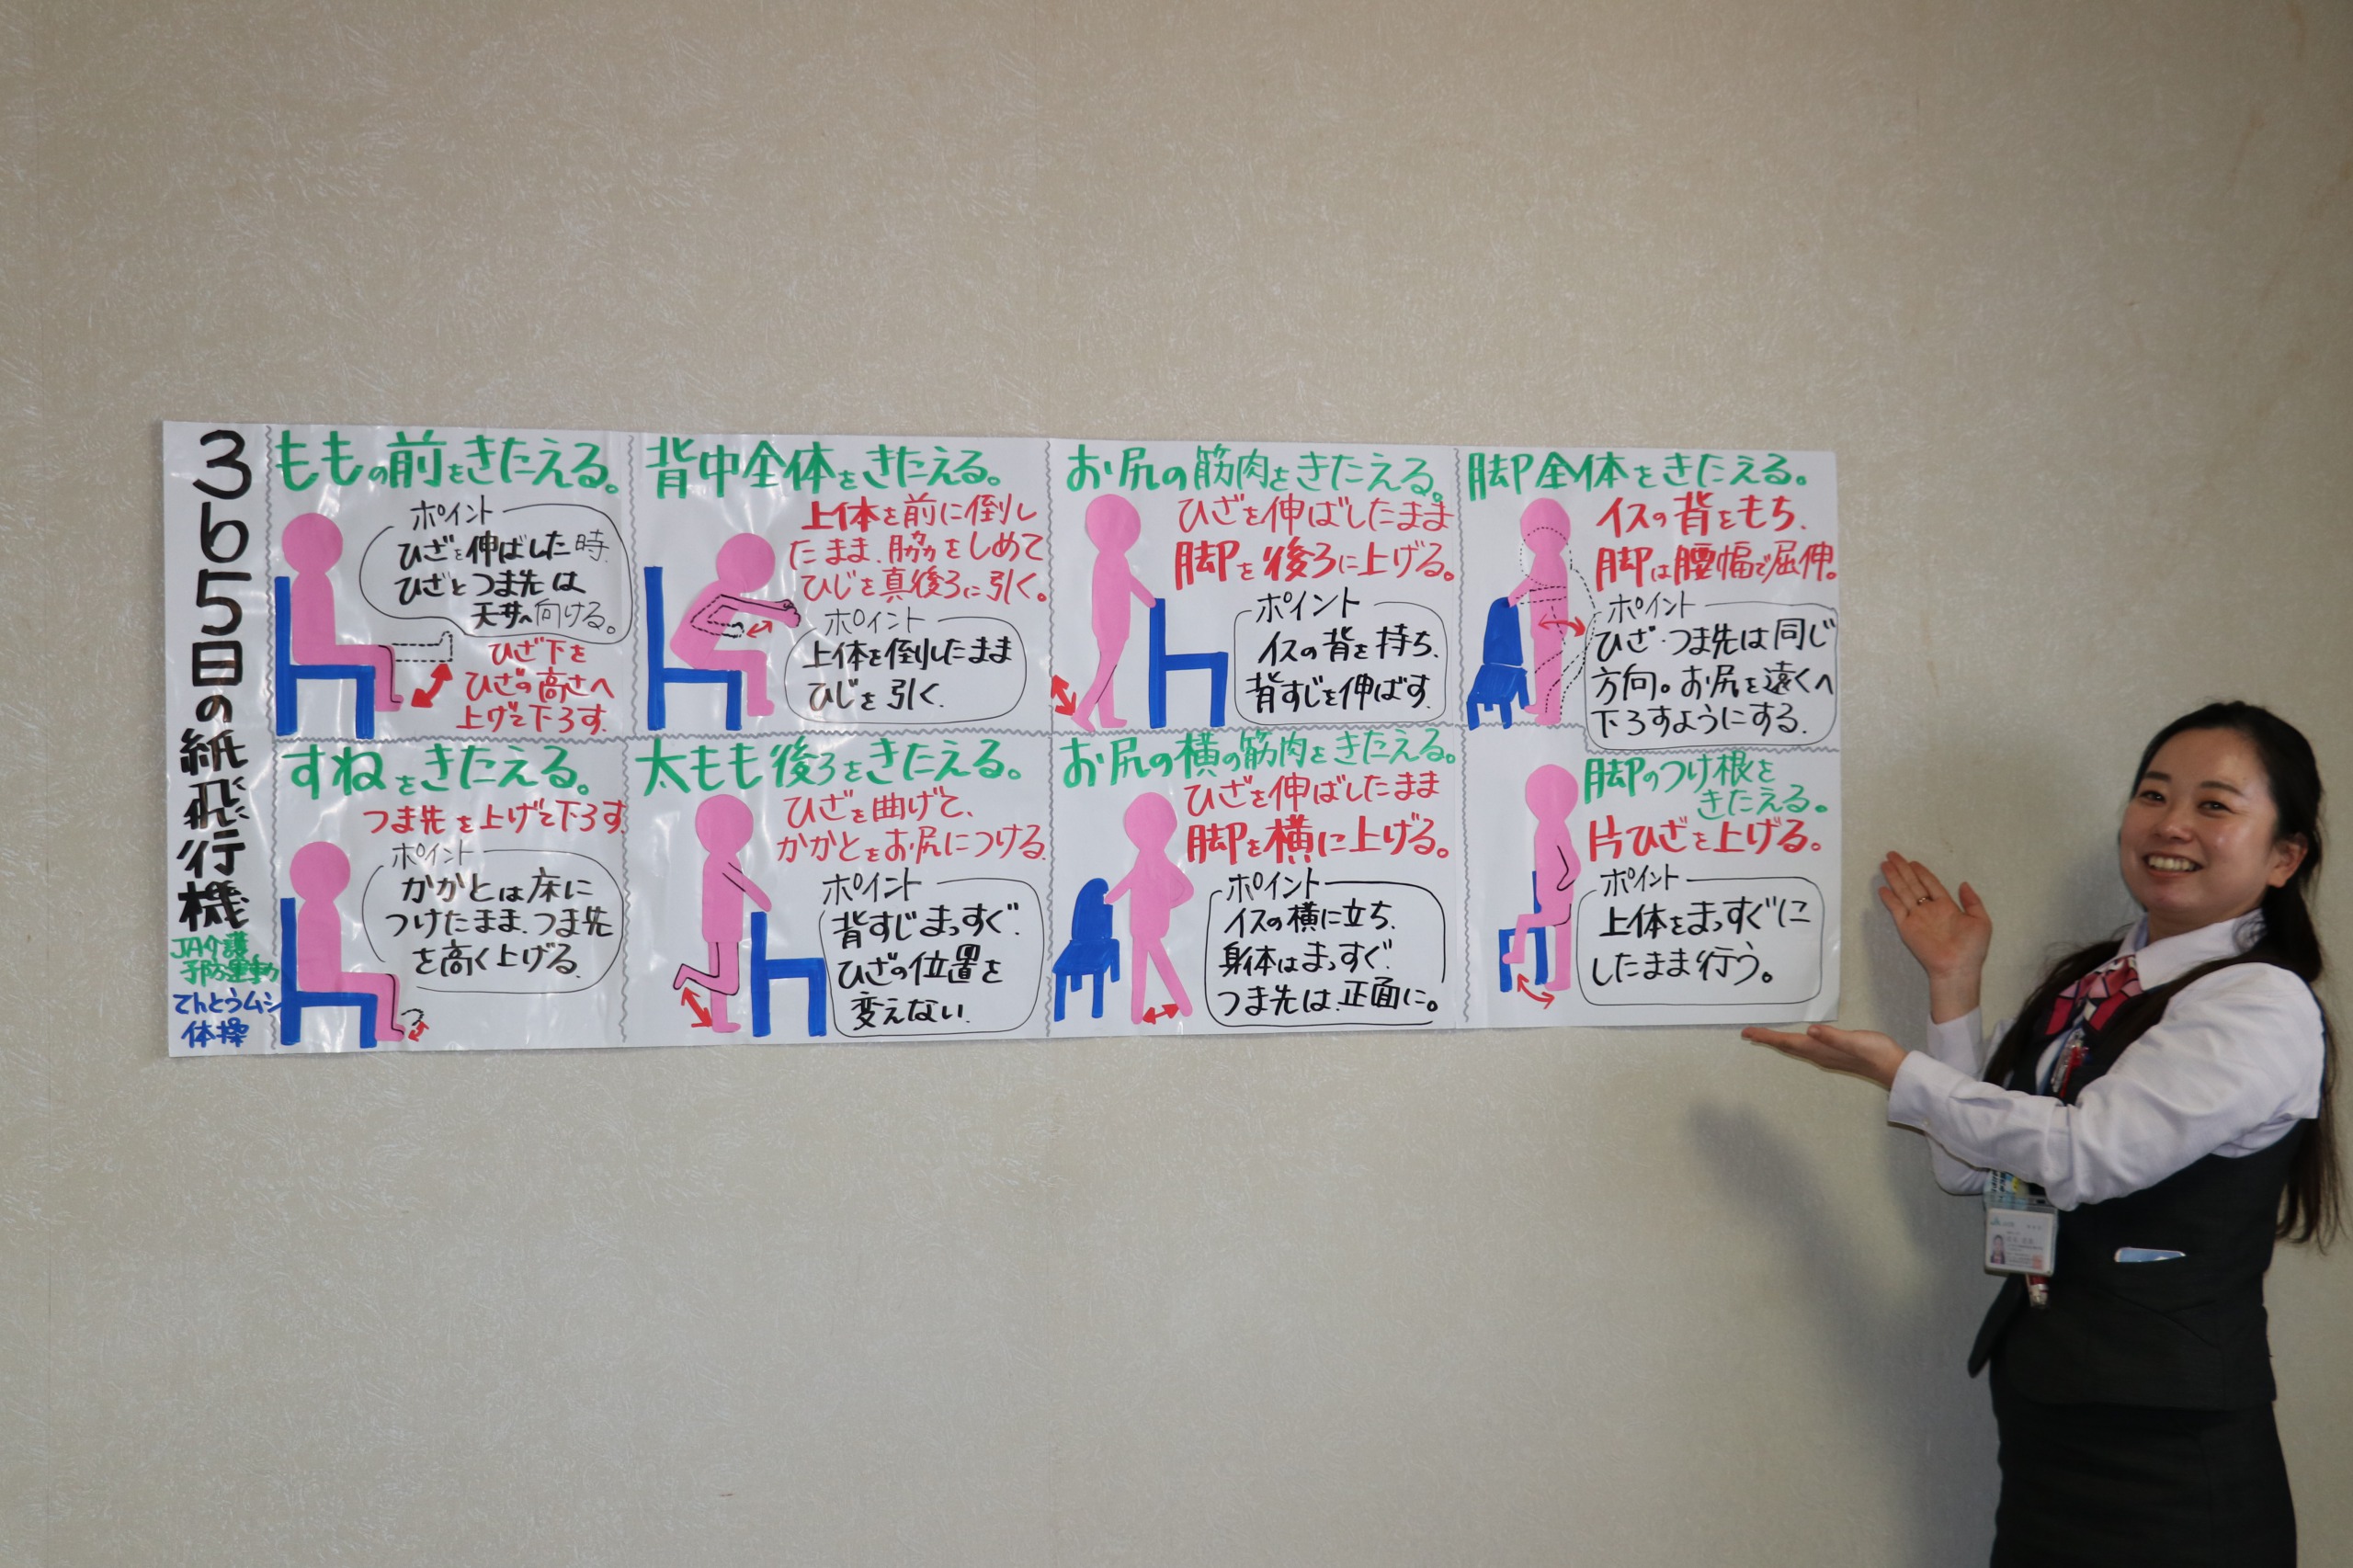 365日の紙飛行機
JA介護
予防運動
てんとうムシ
体操
ももの前をきたえる。
ポイント
ひざを伸ばした時
ひざとつま先は
天井へ向ける。
ひざ下を
ひざの高さへ
上げて下ろす。
背中全体をきたえる。
上体を前に倒し
たまま、脇をしめて
ひじを真後ろに引く。
ポイント
上体を倒したまま
ひじを引く。
お尻の筋肉をきたえる。
ひざを伸ばしたまま
脚を後ろに上げる。
ポイント
イスの背を持ち、
背すじを伸ばす。
脚全体をきたえる。
イスの背をもち、
脚は腰幅で屈伸。
ポイント
ひざ・つま先は同じ
方向。お尻を遠くへ
下ろすようにする。
すねをきたえる。
つま先を上げて下ろす
ポイント
かかとは床に
つけたまま、つま先
を高く上げる。
太もも後ろをきたえる。
ひざを曲げて、
かかとをお尻につける。
ポイント
背すじまっすぐ。
ひざの位置を
変えない。
お尻の横の筋肉をきたえる。
ひざを伸ばしたまま
脚を横に上げる。
ポイント
イスの横に立ち、
身体はまっすぐ。
つま先は正面に。
脚のつけ根を
きたえる。
片ひざを上げる。
ポイント
上体をまっすぐに
したまま行う。